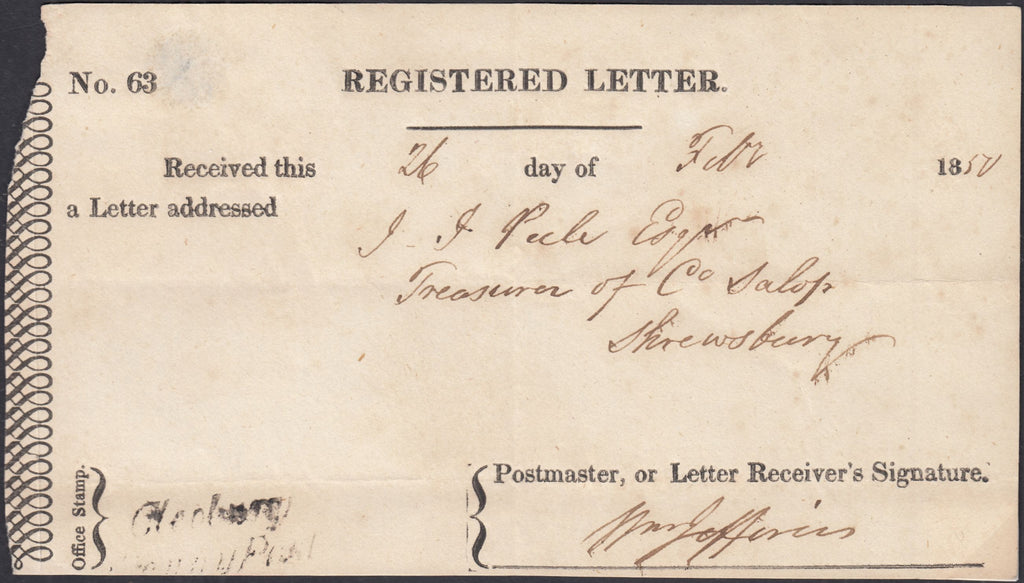 No. 63
REGISTERED LETTER.
Received this 26 day of Febr 1850
a Letter addressed
J. J. Peele Esqr
Treasurer of Co Salop
Shrewsbury
Office Stamp.
Cleobury
Penny Post
Postmaster, or Letter Receiver's Signature.
Wm Jefferies